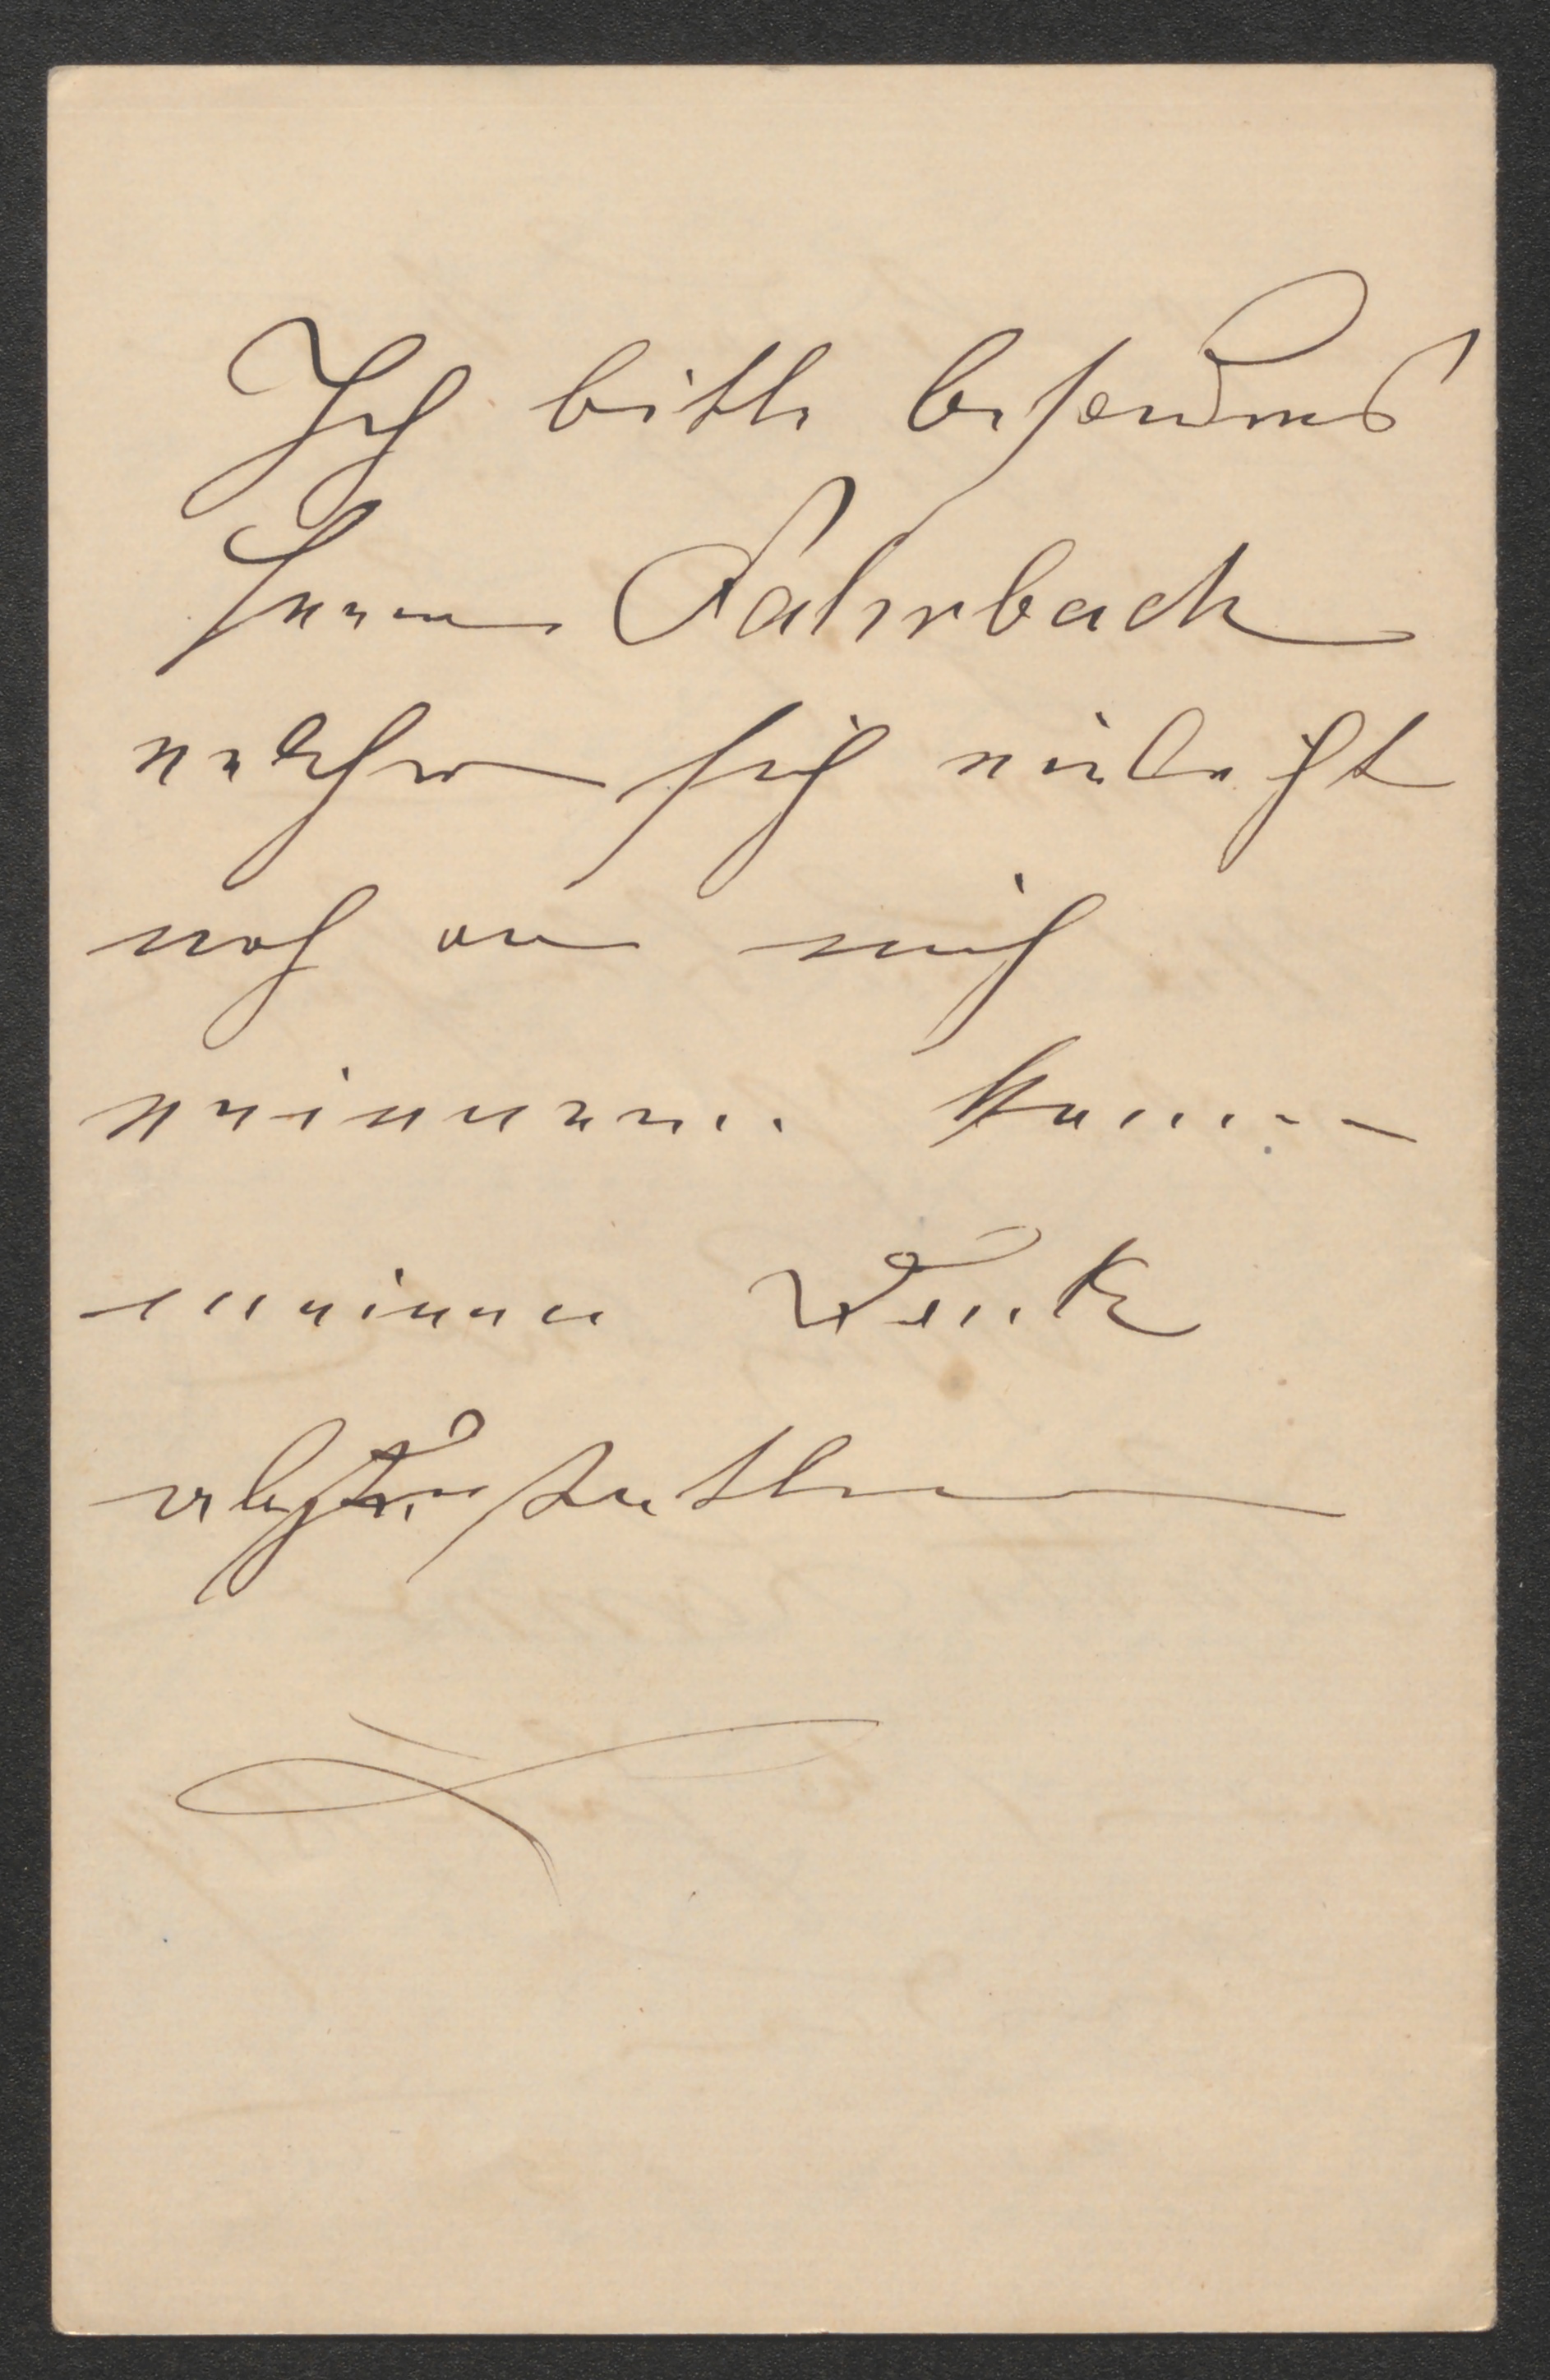 Ich bitte besonders
Herrn Fahrbach
welcher sich vieleicht
noch an mich
erinnern kann
meinen Dank
abzustatten